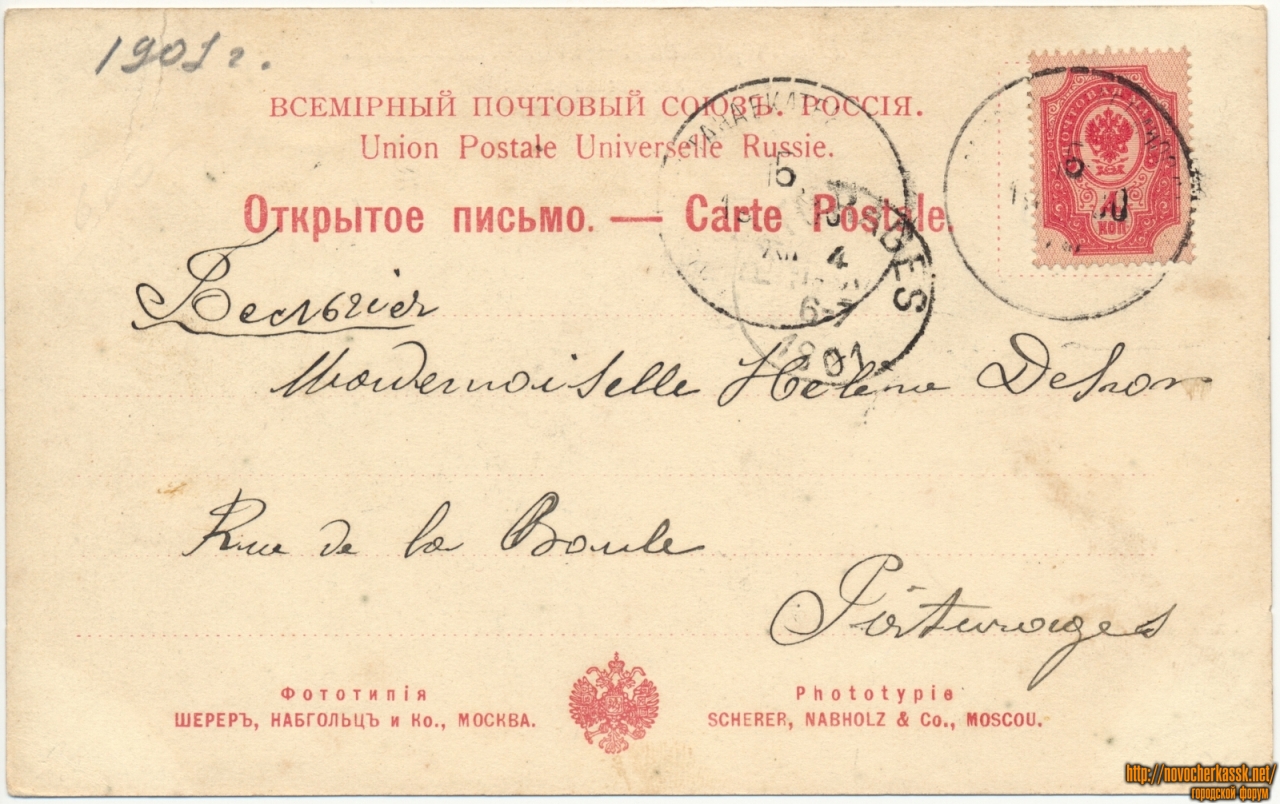 1901 г.
ВСЕМІРНЫЙ ПОЧТОВЫЙ СОЮЗЪ. РОССІЯ.
Union Postale Universelle Russie.
Открытое письмо. — Carte Postale.
15
4
6-7
1901
10
КОП
Mademoiselle Hélène
Rue de la Boule
Pâturages
Фототипія
ШЕРЕРЪ, НАБГОЛЬЦЪ и Ко., МОСКВА.
Phototypie
SCHERER, NABHOLZ & Co., MOSCOU.
http://novocherkassk.net/
городской форум